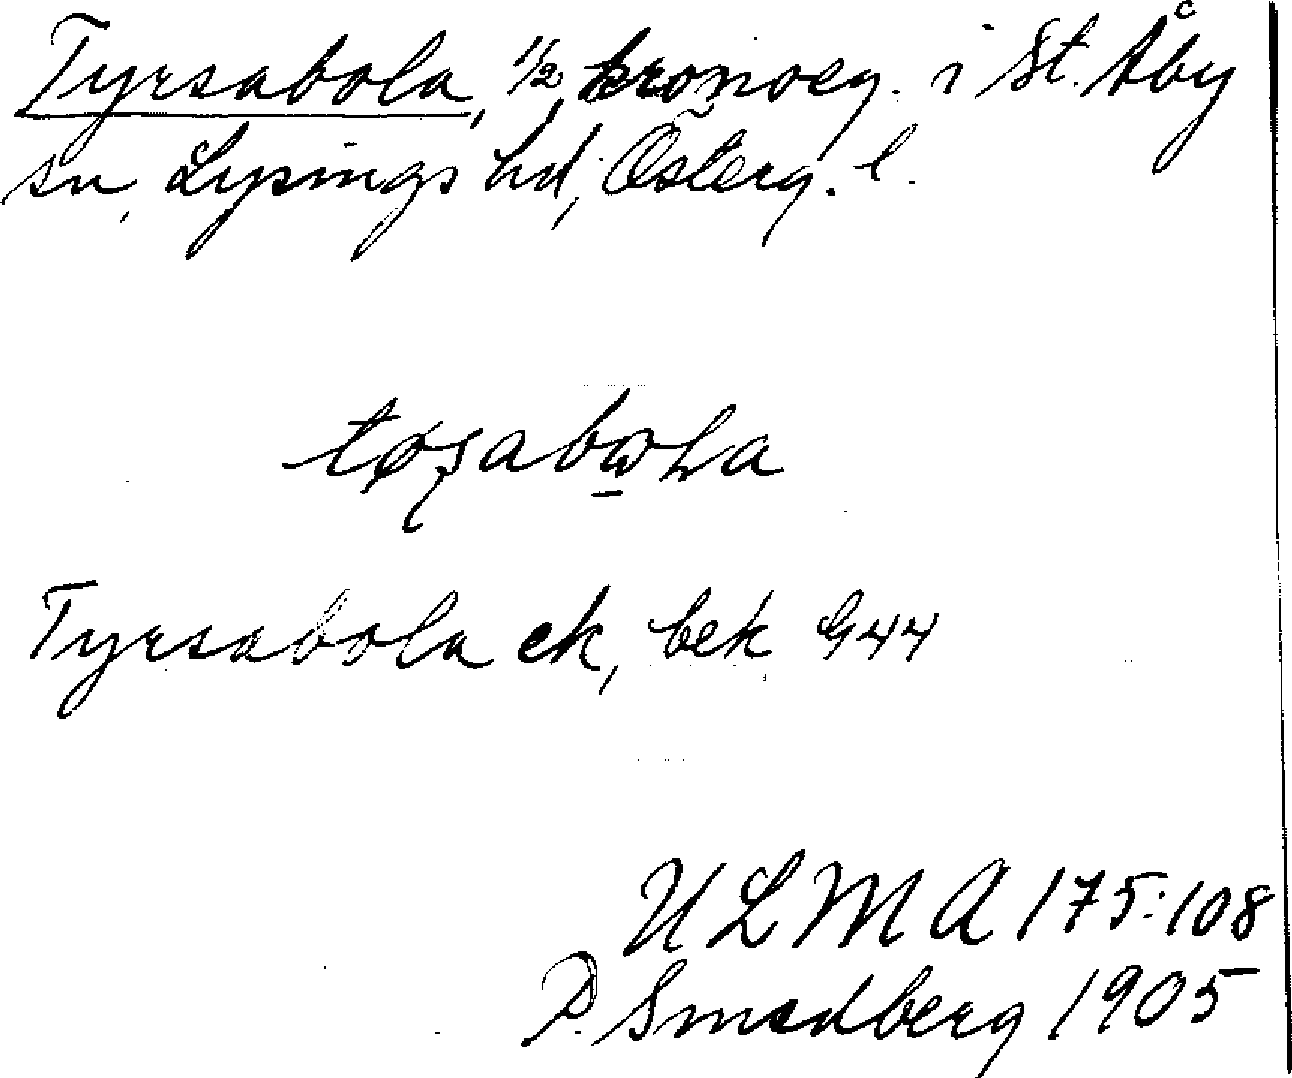 Tyrsabola, 1/2 kronoeg. i St. Åby
sn, Lysings hd, Österg. l.
Tyrsabola ek, bek G44
ULMA 175:108
P. Smedberg 1905